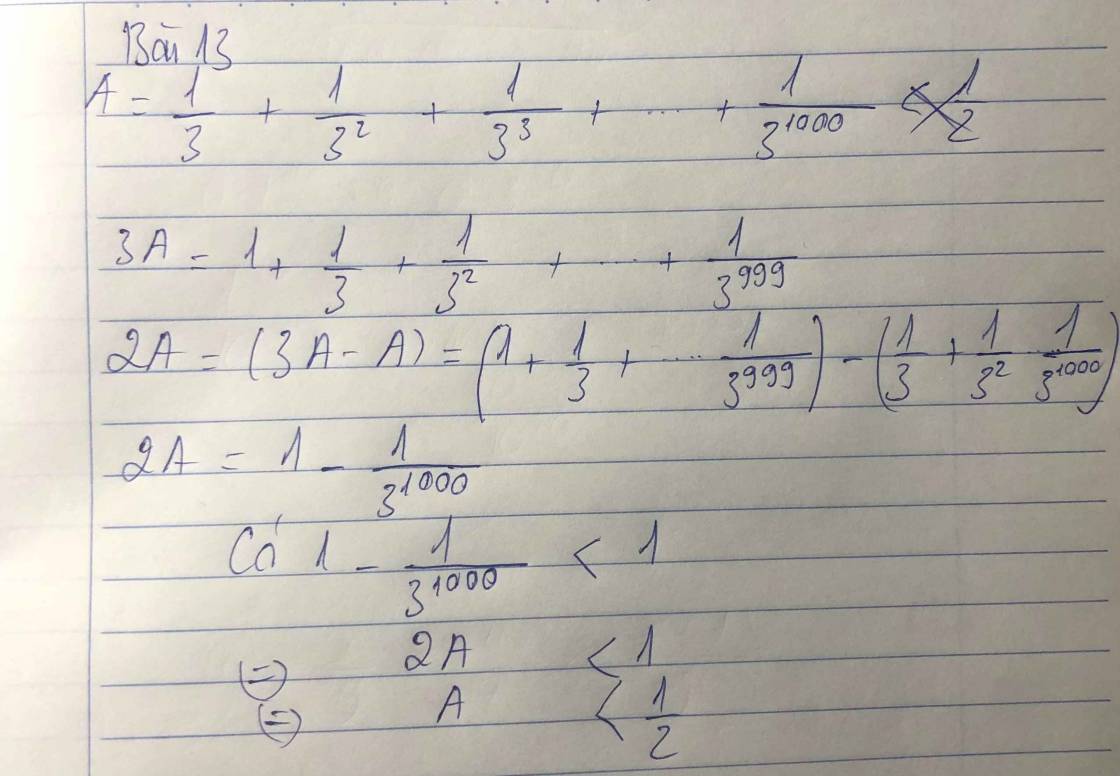 Bài 13
A = 1/3 + 1/3² + 1/3³ + ... + 1/3¹⁰⁰⁰
3A = 1 + 1/3 + 1/3² + ... + 1/3⁹⁹⁹
2A = (3A - A) = (1 + 1/3 + ... 1/3⁹⁹⁹) - (1/3 + 1/3² ... 1/3¹⁰⁰⁰)
2A = 1 - 1/3¹⁰⁰⁰
Có 1 - 1/3¹⁰⁰⁰ < 1
(=) 2A < 1
(=) A < 1/2